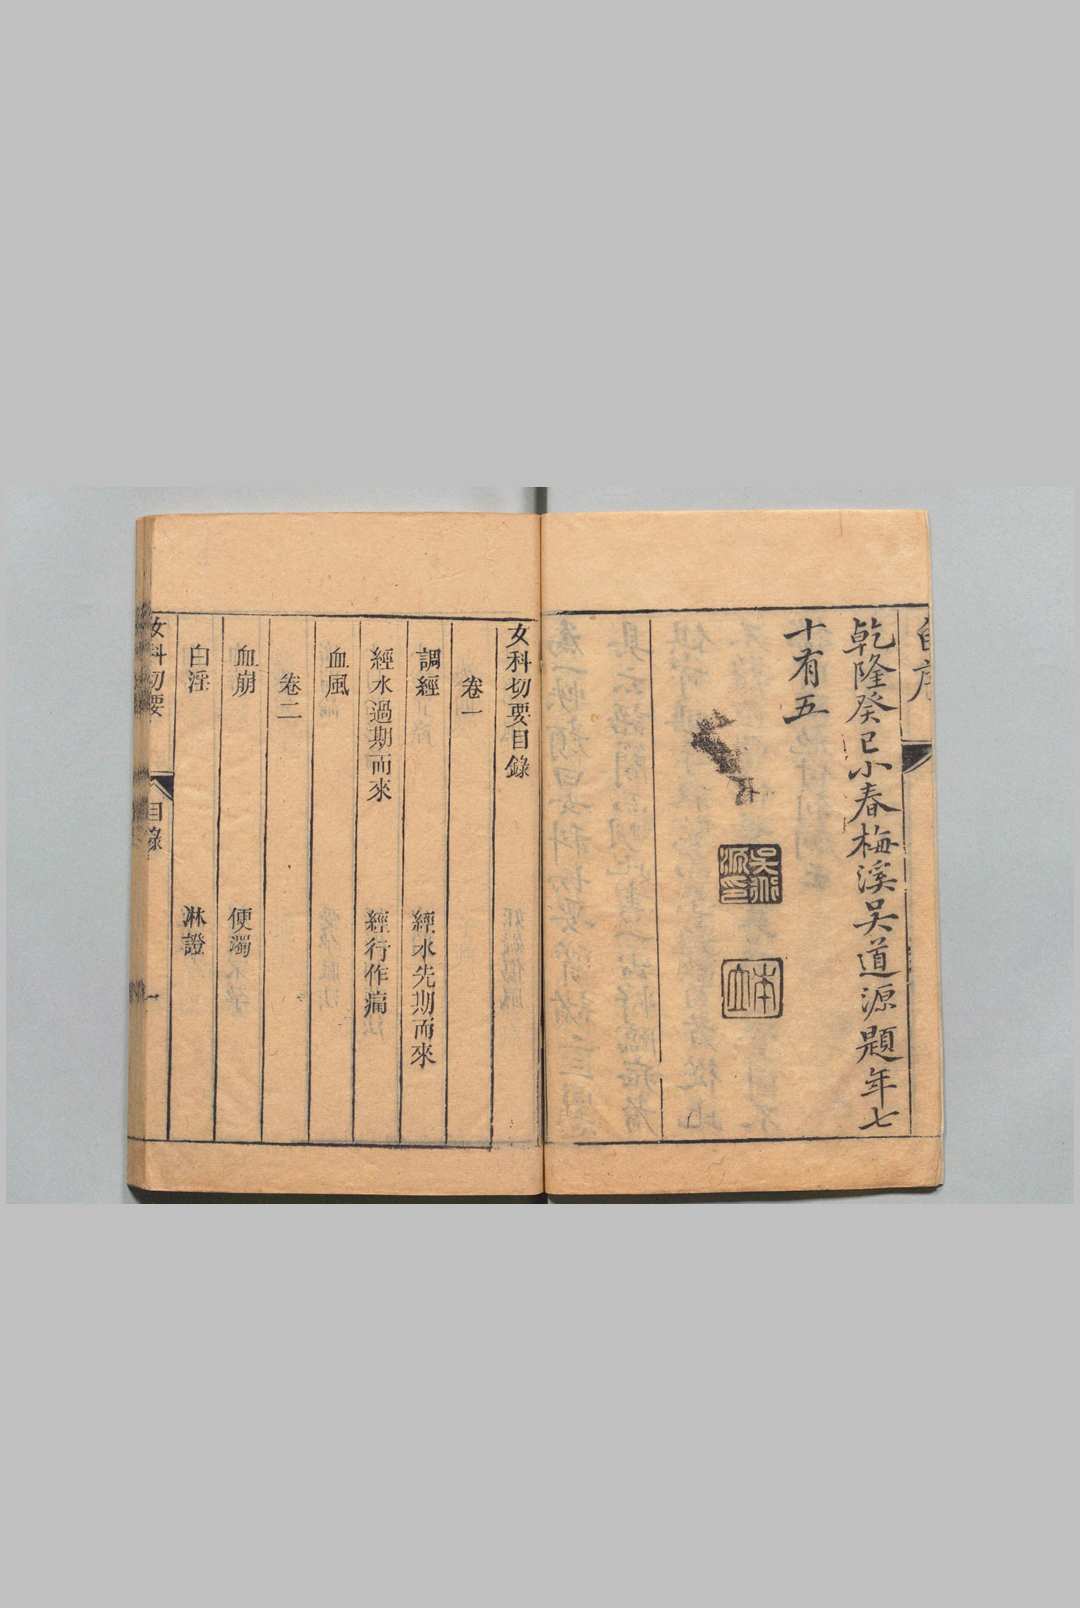 自序
乾隆癸巳小春梅溪吳道源題年七
十有五
吳道
源印
本
立
女科切要目錄
卷一
調經　經水先期而來
經水過期而來　經行作痛
血風
卷二
血崩　便濁
白淫　淋證
女科切要　目錄　一